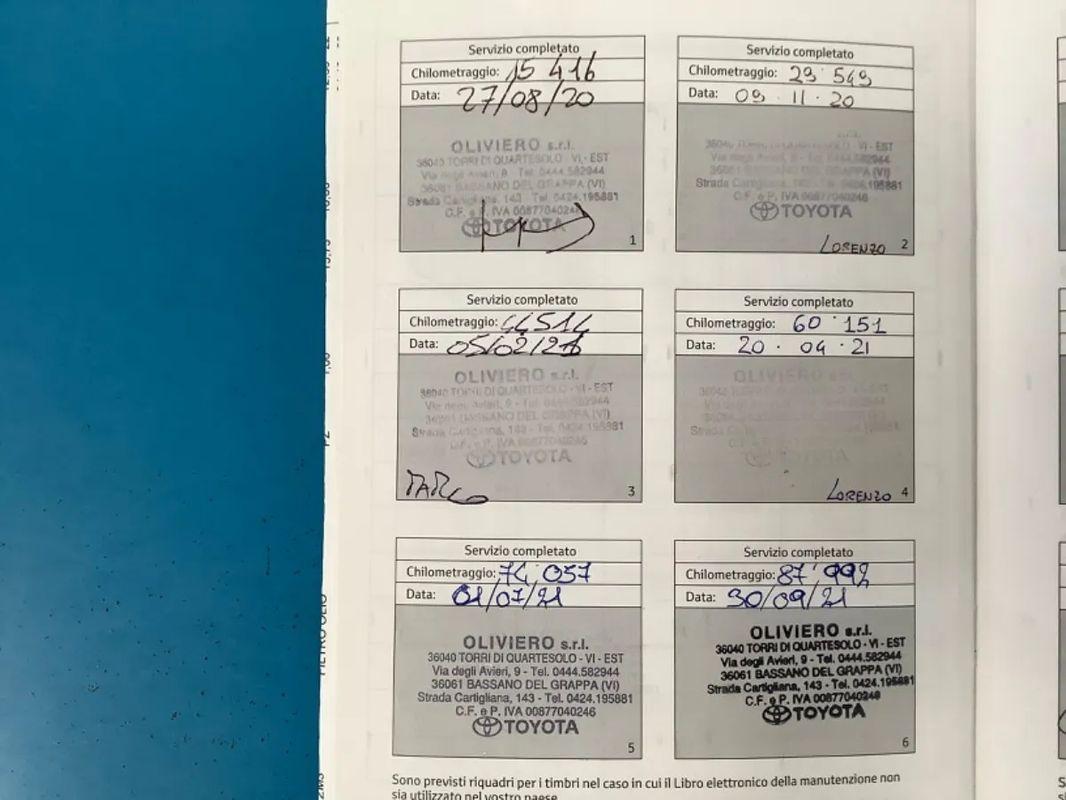 Servizio completato
Chilometraggio: 15 416
Data: 27/08/20
OLIVIERO s.r.l.
36040 TORRI DI QUARTESOLO - VI - EST
Via degli Avieri, 9 - Tel. 0444.582944
36061 BASSANO DEL GRAPPA (VI)
Strada Cartigliana, 143 - Tel. 0424.195881
C.F. e P. IVA 00877040246
TOYOTA
1
Servizio completato
Chilometraggio: 29 549
Data: 09 · 11 · 20
36040 TORRI DI QUARTESOLO - VI - EST
Via degli Avieri, 9 - Tel. 0444.582944
36061 BASSANO DEL GRAPPA (VI)
Strada Cartigliana, 143 - Tel. 0424.195881
C.F. e P. IVA 00877040246
TOYOTA
LORENZO 2
Servizio completato
Chilometraggio: 44514
Data: 05/02/21
OLIVIERO s.r.l.
36040 TORRI DI QUARTESOLO - VI - EST
Via degli Avieri, 9 - Tel. 0444.582944
36061 BASSANO DEL GRAPPA (VI)
Strada Cartigliana, 143 - Tel. 0424.195881
C.F. e P. IVA 00877040246
TOYOTA
MARCO 3
Servizio completato
Chilometraggio: 60 151
Data: 20 · 04 · 21
OLIVIERO
36040 TORRI DI QUARTESOLO
Strada
TOYOTA
LORENZO 4
Servizio completato
Chilometraggio: 74'057
Data: 01/07/21
OLIVIERO s.r.l.
36040 TORRI DI QUARTESOLO - VI - EST
Via degli Avieri, 9 - Tel. 0444.582944
36061 BASSANO DEL GRAPPA (VI)
Strada Cartigliana, 143 - Tel. 0424.195881
C.F. e P. IVA 00877040246
TOYOTA
5
Servizio completato
Chilometraggio: 87'992
Data: 30/09/21
OLIVIERO s.r.l.
36040 TORRI DI QUARTESOLO - VI - EST
Via degli Avieri, 9 - Tel. 0444.582944
36061 BASSANO DEL GRAPPA (VI)
Strada Cartigliana, 143 - Tel. 0424.195881
C.F. e P. IVA 00877040246
TOYOTA
6
Sono previsti riquadri per i timbri nel caso in cui il Libro elettronico della manutenzione non
sia utilizzato nel vostro paese